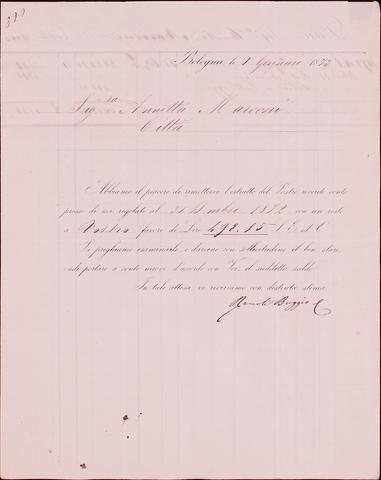 Bologna li 1 Gennaio 1873
Sig.ra Annetta Marconi
Città
Abbiamo il piacere di rimettervi l'estratto del Vostro ricordo conto
presso di noi regolato al 31 Dicembre 1872 con un resto
a Vostro favore di Lire 498.15 S E ed O
Vi preghiamo esaminarlo e darcene con sollecitudine il ben stare
onde portare a conto nuovo d'accordo con Voi, il suddetto saldo.
In tale attesa, vi riveriamo con distinta stima
Renoli Buggio C